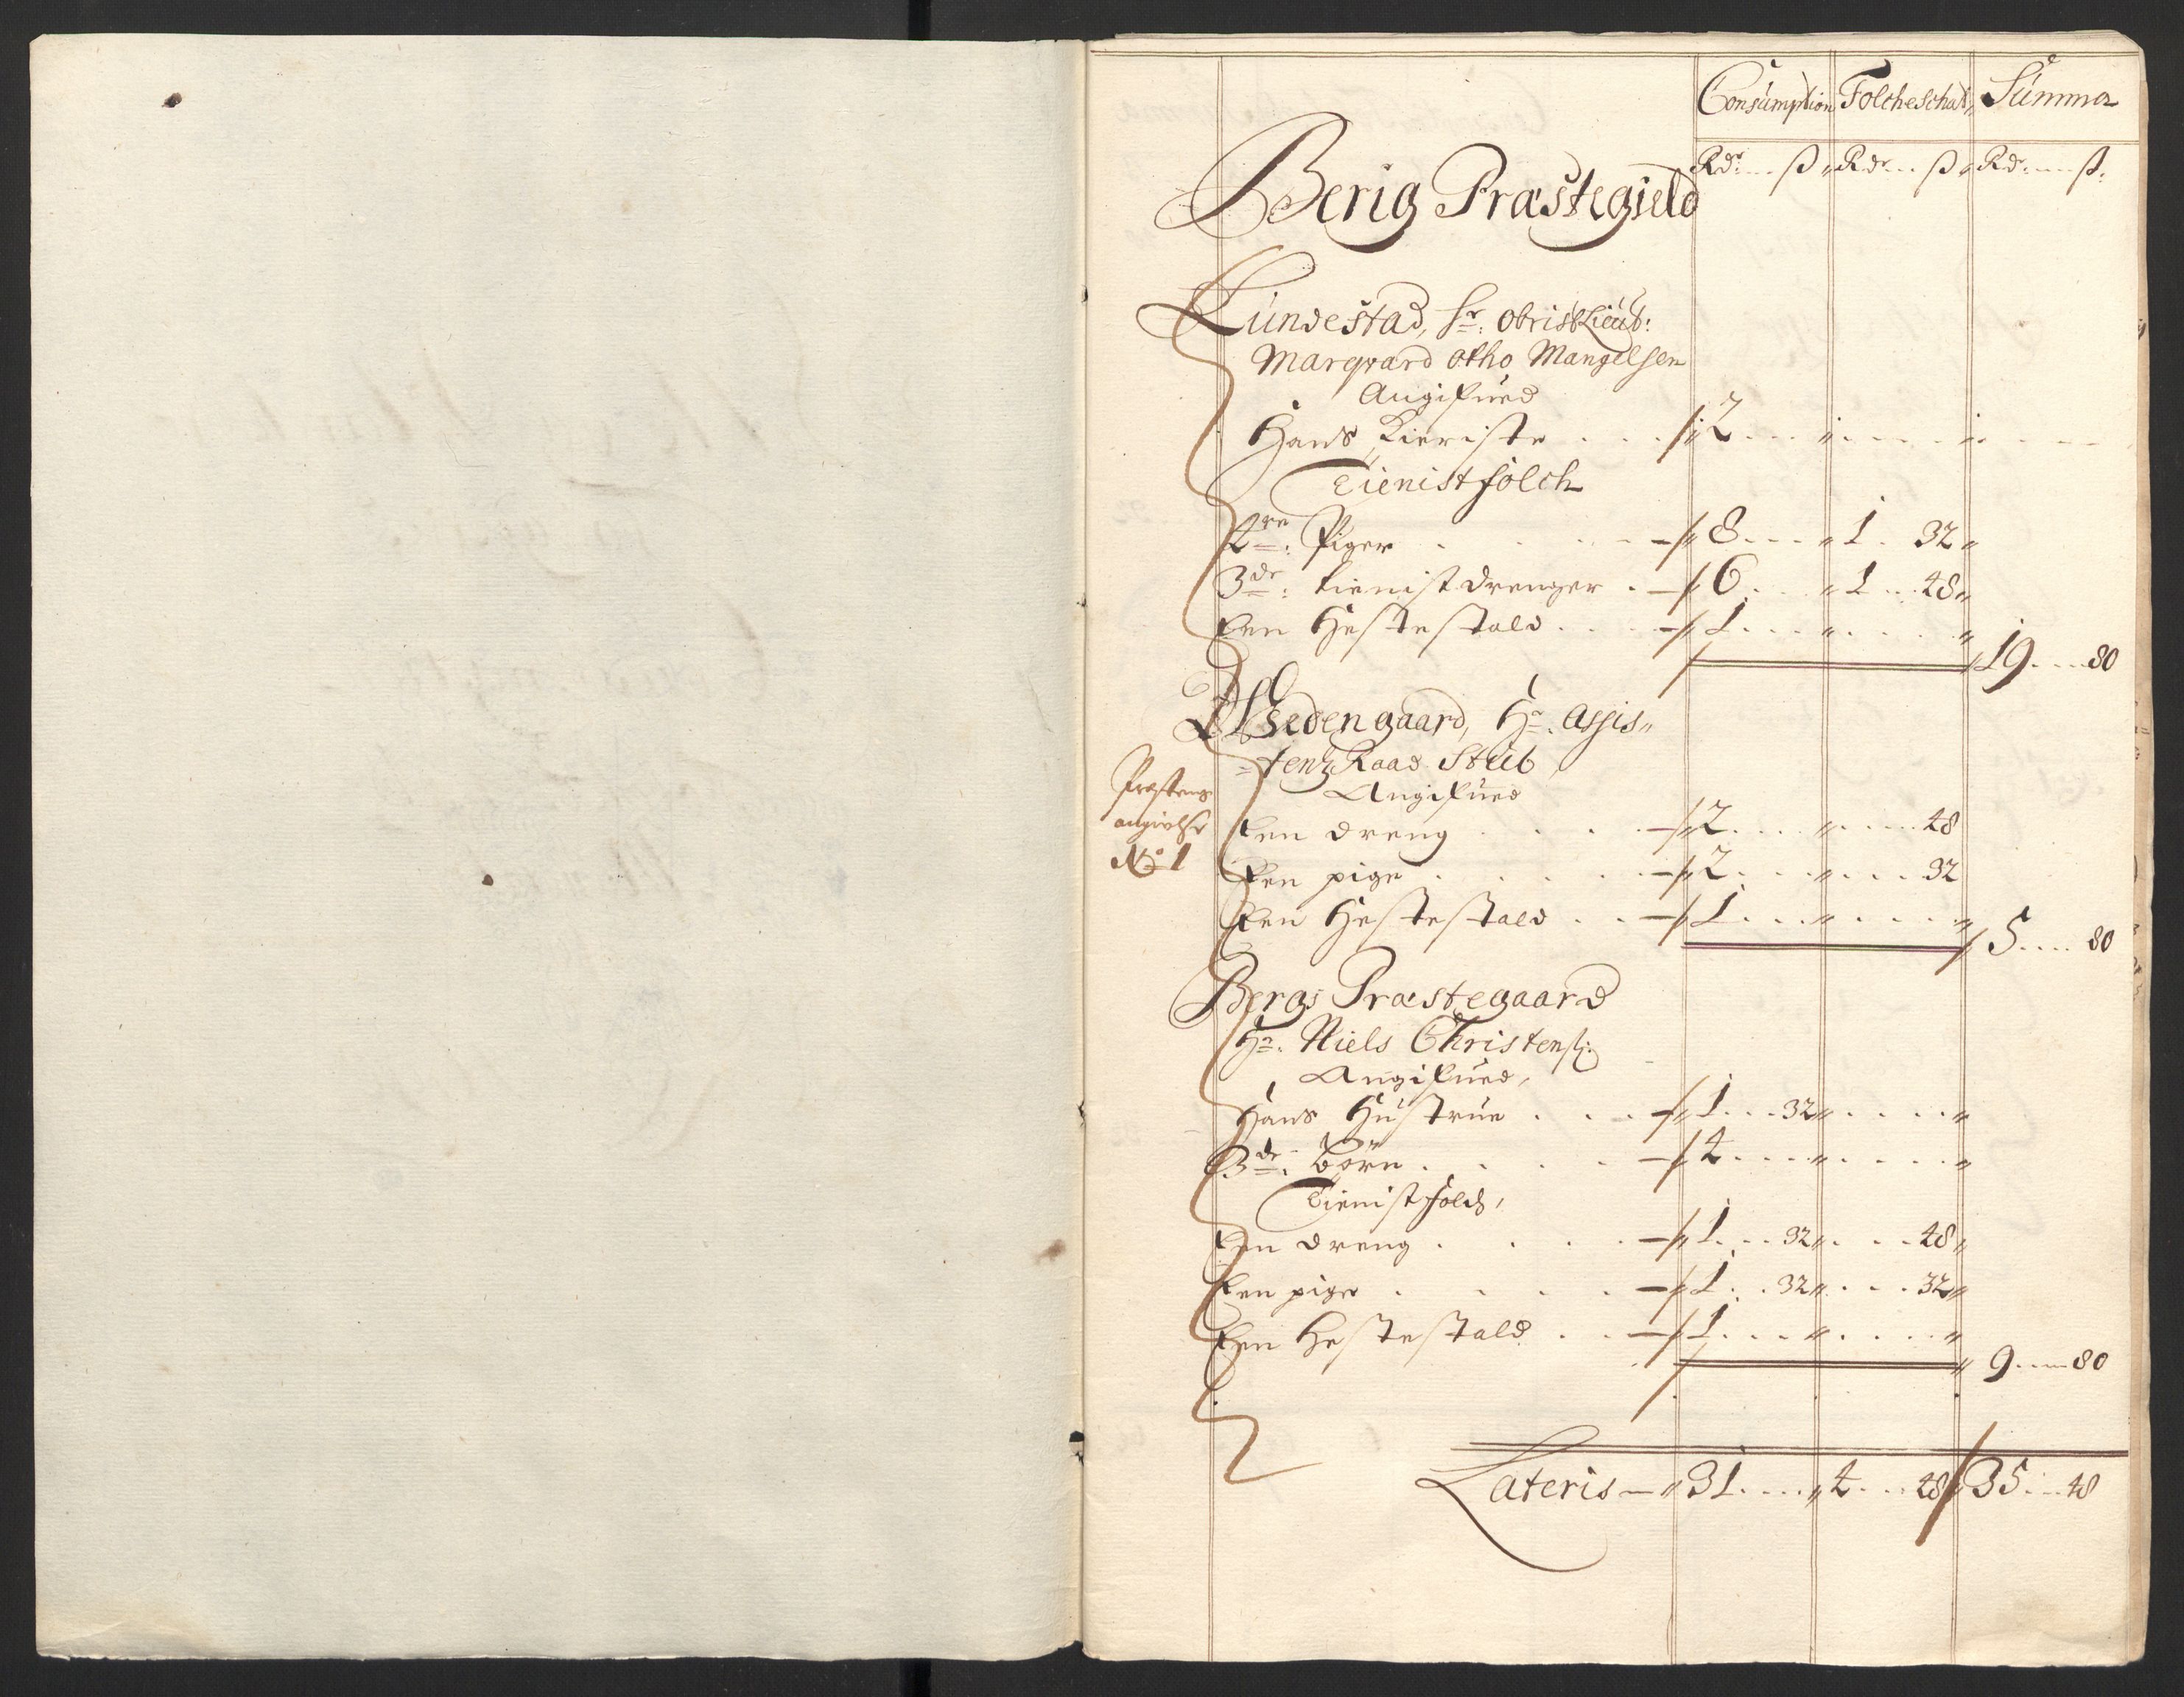 Consumption Folcheschat, Summa
Rdr: ß Rdr ß Rdr: ß:
Berig Præstegield
Lundestad, Hr: obristLieut:
Marqvard otho Mangelsen
Angifued
Hans 2
Tienistfolch
4re: Piger 8 1. 32
3de: tienist drenger 6 1 48
Een Hestestald 1
19 80
Wedengaard, Hr. Assis-
tentz Raad Stub
Angifued
Præstens
angivelse
No 1
Een dreng 2 48
Een pige 2 32
Een Hestestald 1
5 80
Bergs Præstegaard
Hr. Niels Christens:
Angifued,
Hans Hustrue 1 32
3de: børn 4
Tienistfolch,
Een dreng 1 32 48
Een pige 1 32 32
Een Hestestald 1
9 80
Lateris 31 4 48 35 48